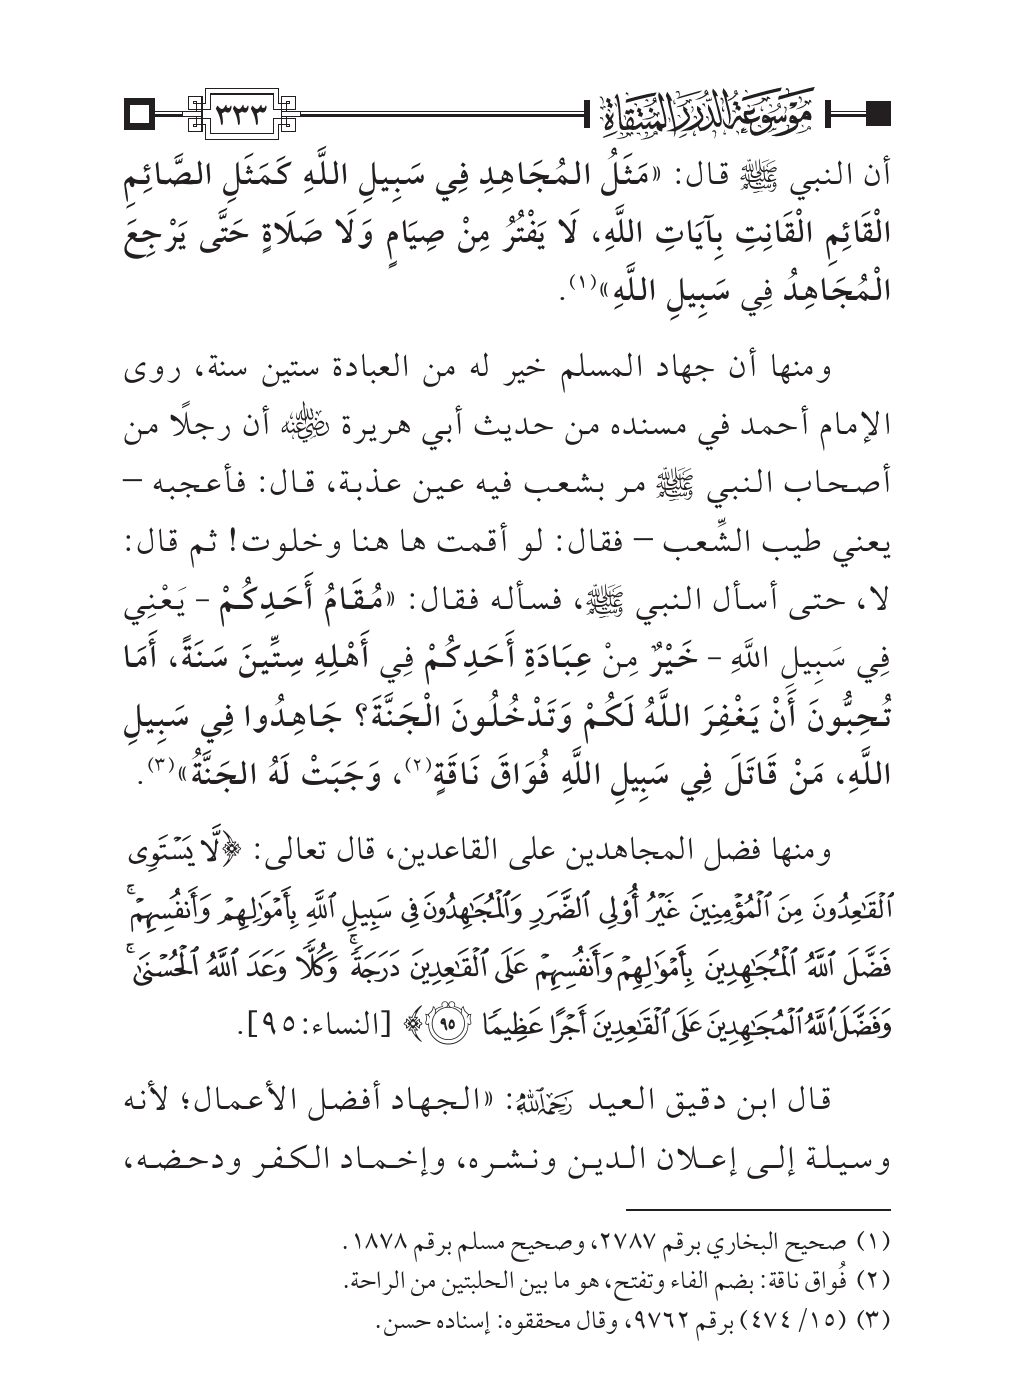 مَوْسُوعَةُ الدُّرَرِ المُنْتَقَاةِ
٣٣٣
أن النبي ﷺ قال: «مَثَلُ المُجَاهِدِ فِي سَبِيلِ اللَّهِ كَمَثَلِ الصَّائِمِ
الْقَائِمِ الْقَانِتِ بِآيَاتِ اللَّهِ، لَا يَفْتُرُ مِنْ صِيَامٍ وَلَا صَلَاةٍ حَتَّى يَرْجِعَ
الْمُجَاهِدُ فِي سَبِيلِ اللَّهِ»(١).
ومنها أن جهاد المسلم خير له من العبادة ستين سنة، روى
الإمام أحمد في مسنده من حديث أبي هريرة رضي الله عنه أن رجلًا من
أصحاب النبي ﷺ مر بشعب فيه عين عذبة، قال: فأعجبه –
يعني طيب الشِّعب – فقال: لو أقمت ها هنا وخلوت! ثم قال:
لا، حتى أسأل النبي ﷺ، فسأله فقال: «مُقَامُ أَحَدِكُمْ – يَعْنِي
فِي سَبِيلِ اللَّهِ – خَيْرٌ مِنْ عِبَادَةِ أَحَدِكُمْ فِي أَهْلِهِ سِتِّينَ سَنَةً، أَمَا
تُحِبُّونَ أَنْ يَغْفِرَ اللَّهُ لَكُمْ وَتَدْخُلُونَ الْجَنَّةَ؟ جَاهِدُوا فِي سَبِيلِ
اللَّهِ، مَنْ قَاتَلَ فِي سَبِيلِ اللَّهِ فُوَاقَ نَاقَةٍ(٢)، وَجَبَتْ لَهُ الجَنَّةُ»(٣).
ومنها فضل المجاهدين على القاعدين، قال تعالى: ﴿لَّا يَسۡتَوِى
ٱلۡقَٰعِدُونَ مِنَ ٱلۡمُؤۡمِنِينَ غَيۡرُ أُوْلِى ٱلضَّرَرِ وَٱلۡمُجَٰهِدُونَ فِى سَبِيلِ ٱللَّهِ بِأَمۡوَٰلِهِمۡ وَأَنفُسِهِمۡۚ
فَضَّلَ ٱللَّهُ ٱلۡمُجَٰهِدِينَ بِأَمۡوَٰلِهِمۡ وَأَنفُسِهِمۡ عَلَى ٱلۡقَٰعِدِينَ دَرَجَةٗۚ وَكُلّٗا وَعَدَ ٱللَّهُ ٱلۡحُسۡنَىٰۚ
وَفَضَّلَ ٱللَّهُ ٱلۡمُجَٰهِدِينَ عَلَى ٱلۡقَٰعِدِينَ أَجۡرًا عَظِيمٗا ٩٥﴾ [النساء: ٩٥].
قال ابن دقيق العيد رحمه الله: «الجهاد أفضل الأعمال؛ لأنه
وسيلة إلى إعلان الدين ونشره، وإخماد الكفر ودحضه،
(١) صحيح البخاري برقم ٢٧٨٧، وصحيح مسلم برقم ١٨٧٨.
(٢) فُواق ناقة: بضم الفاء وتفتح، هو ما بين الحلبتين من الراحة.
(٣) (١٥/ ٤٧٤) برقم ٩٧٦٢، وقال محققوه: إسناده حسن.